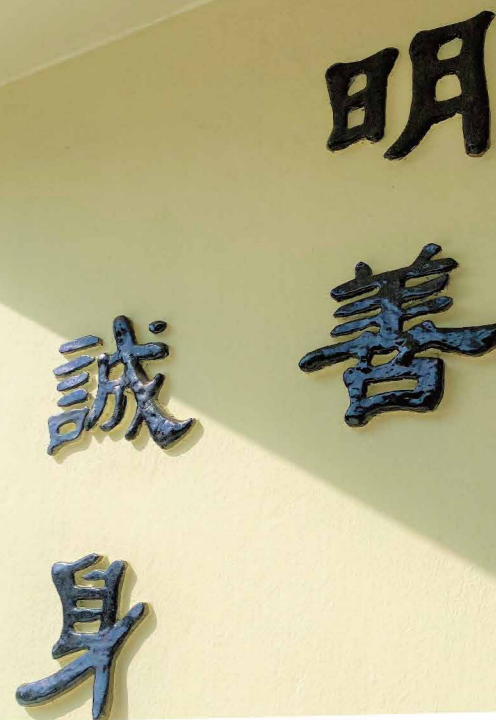 明善
誠身